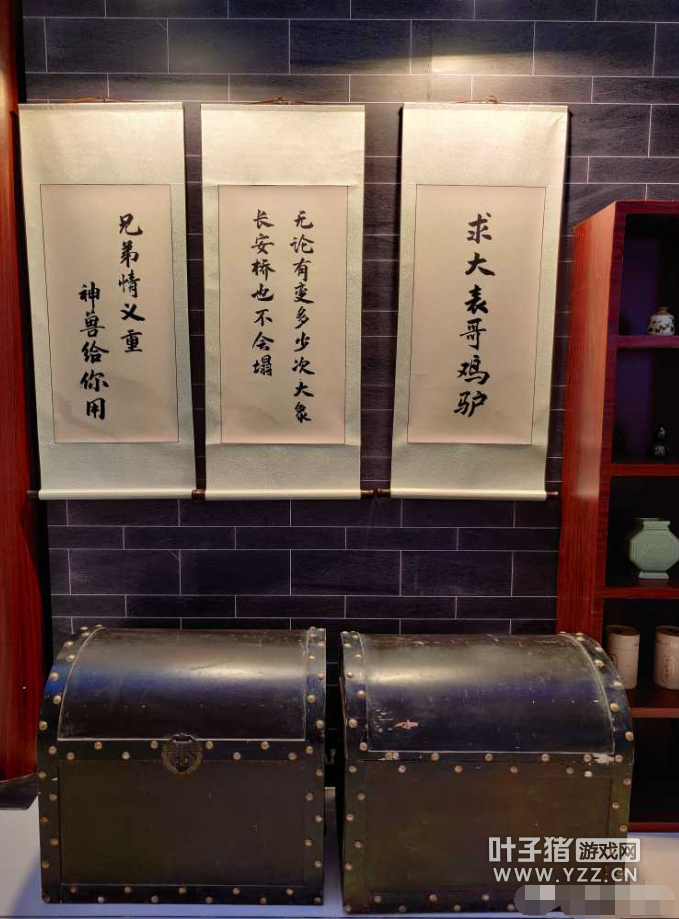 求大表哥鸡驴
无论有变多少次大象
长安桥也不会塌
兄弟情义重
神兽给你用
叶子猪 游戏网
WWW.YZZ.CN